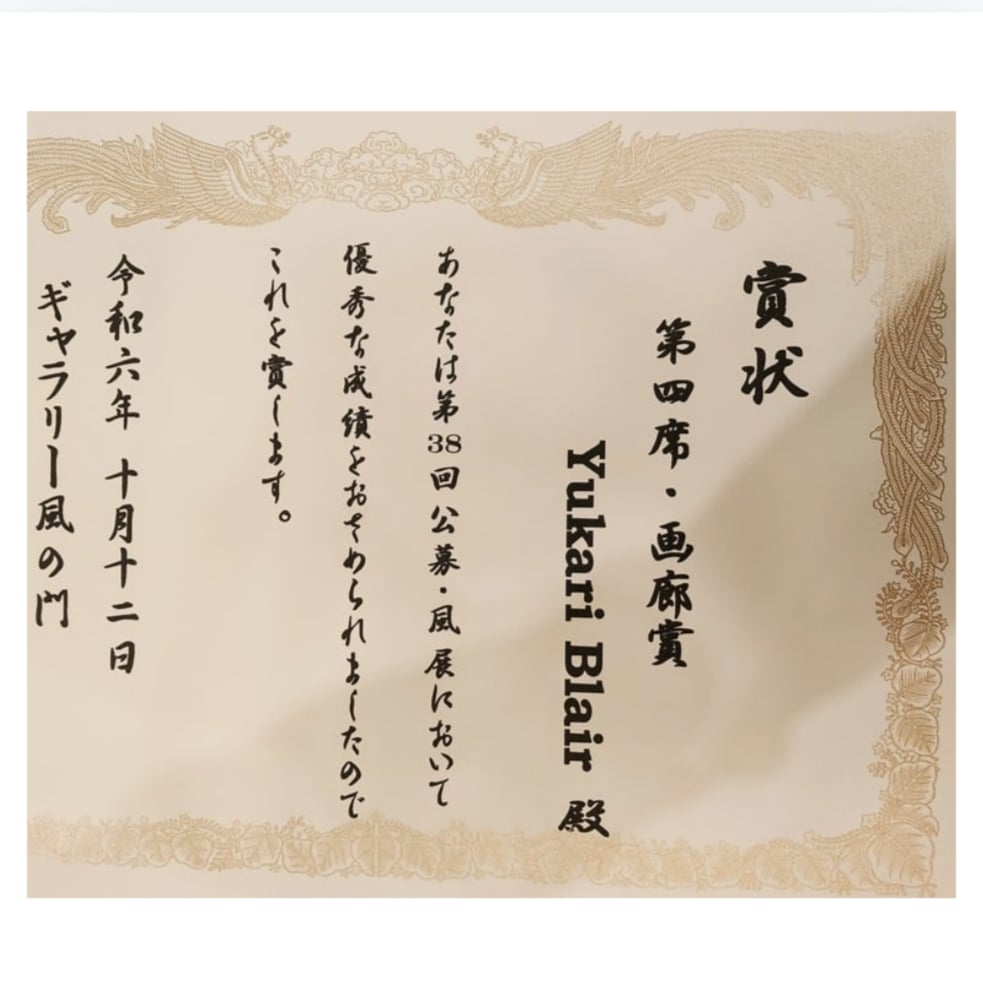 賞状
第四席・画廊賞
Yukari Blair 殿
あなたは第38回公募・風展において
優秀な成績をおさめられましたので
これを賞します。
令和六年 十月十二日
ギャラリー風の門